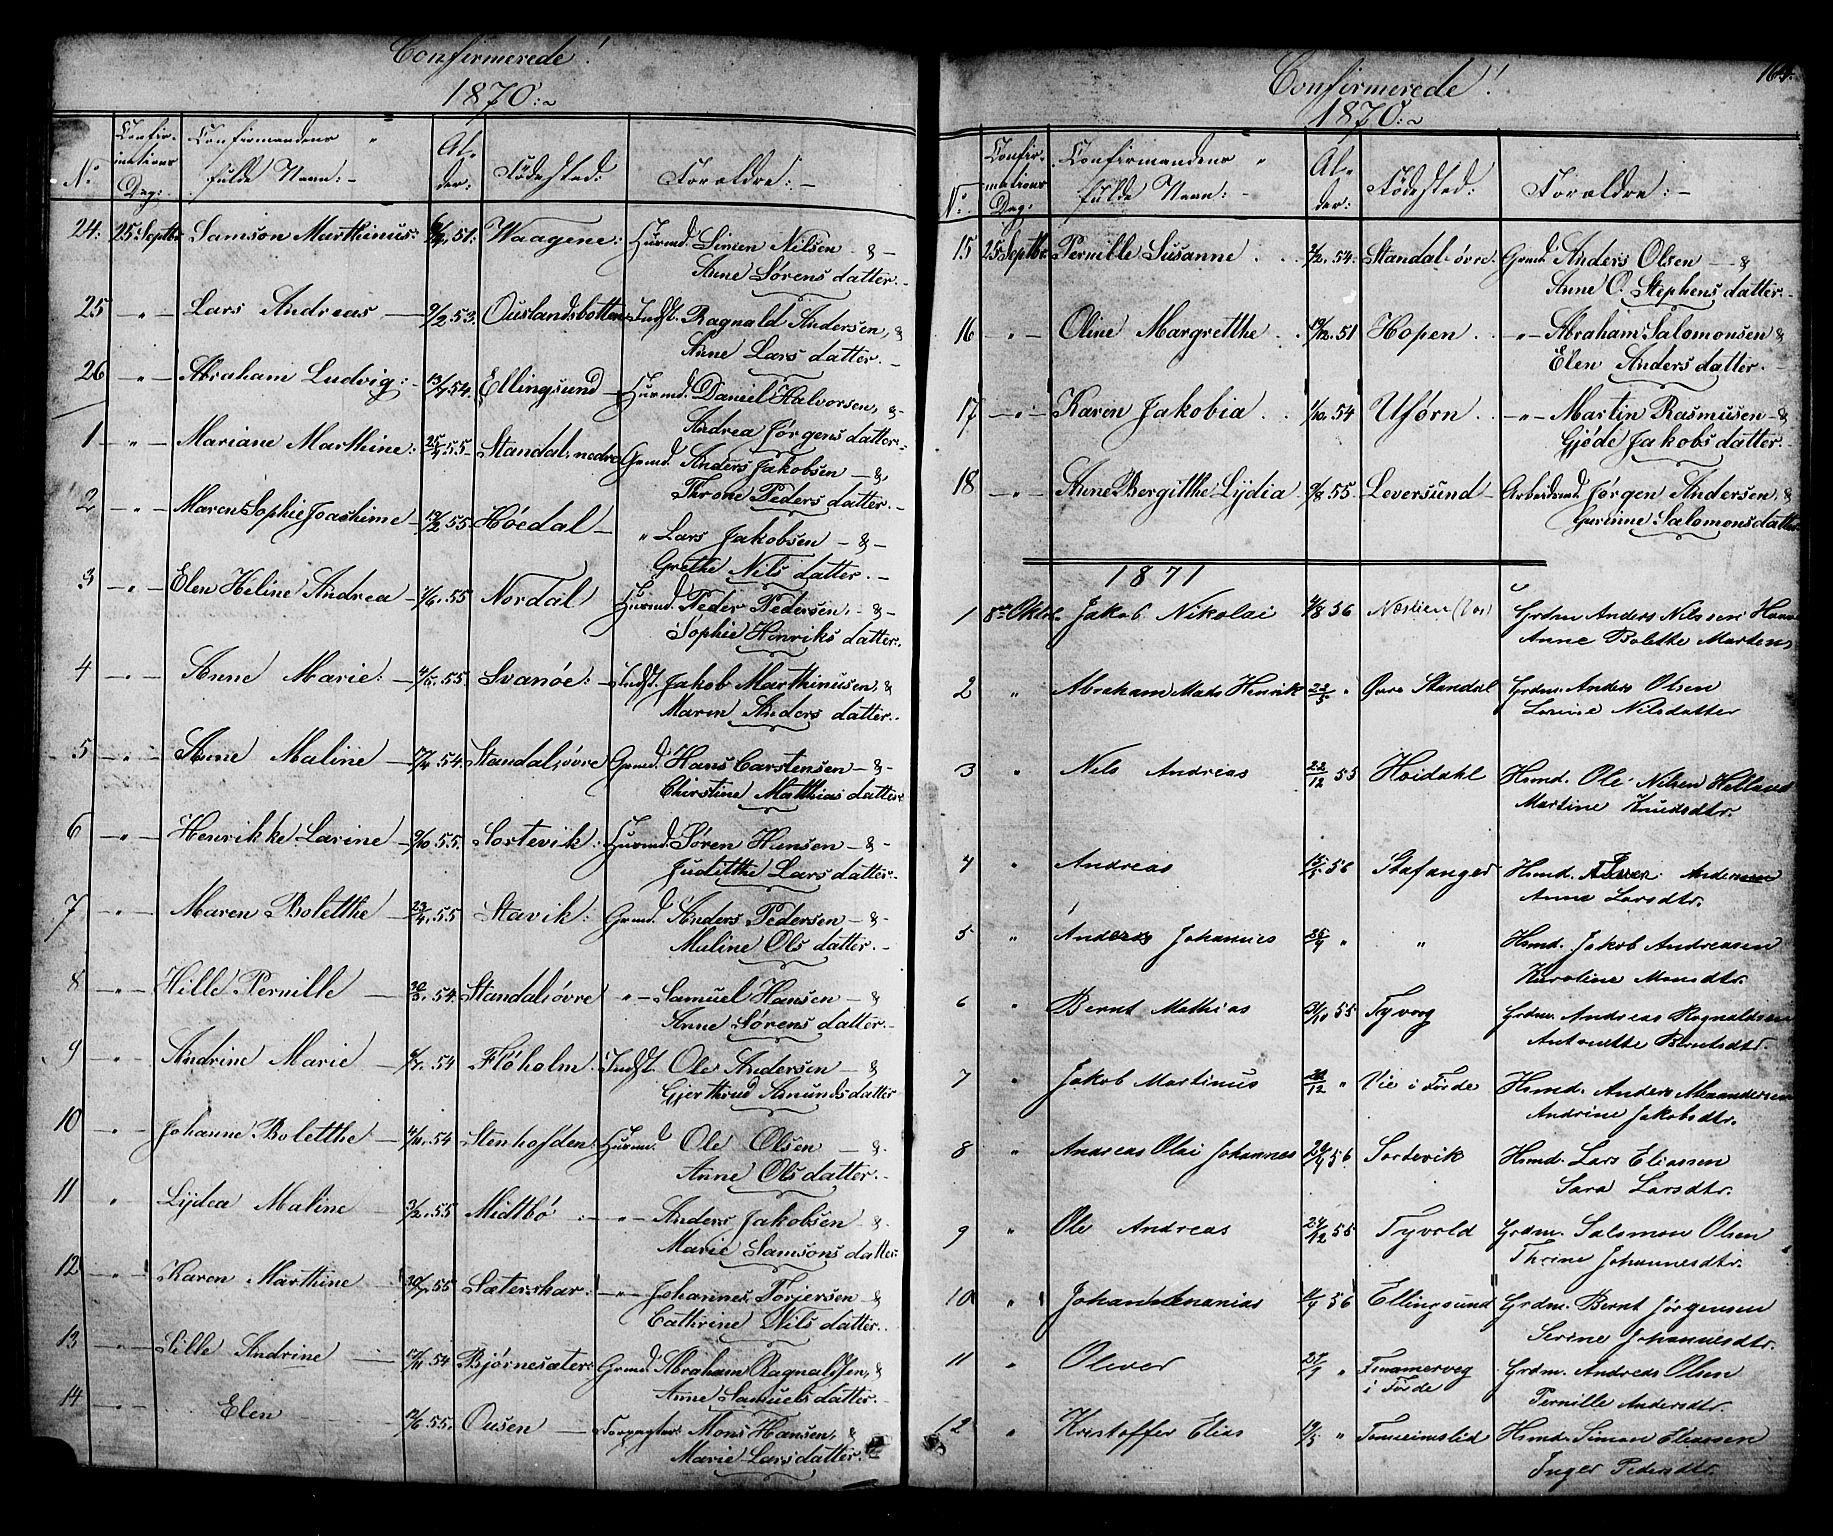 Confirmerede!
1870:~
No: Confirmations Dag: Confirmandens fulde Navn:- Alder: Födested: Forældre:-
24. 25 Septbr Samson Marthinus: 51. Waagene: Huusmd. Simen Nilsen - & -
Anne Sørens datter.-
25 -"- Lars Andreas - 9/2 53. Ouslandsbotten Indst. Ragnald Andersen, &
Anne Lars datter.-
26 -"- Abraham Ludvig:- 13/7 54. Ellingsund - Huusmd. Daniel Halvorsen, &-
Andrea Jørgens datter.-
1 -"- Mariane Marthine: 25/4 55. Standal, nedre Grmd. Anders Jakobsen - &,
Throne Peders datter.-
2 -"- Maren Sophie Joachime - 12/2 55. Höedal - " Lars Jakobsen - & -
Grethe Nils datter.-
3 -"- Elen Heline Andrea - 55 Nordal Huusmd. Peder Pedersen, - & -
Sophie Henriks datter.
4 -"- Anne Marie:- 55. Svanöe: - Indst. Jakob Marthinusen, &
Maren Anders datter.-
5 -"- Anne Maline 54. Standal, øvre Grmd. Hans Carstensen - & -
Christine Matthias datter
6 -"- Henrikke Larine 9/10 55. Sortevik: Huusmd. Søren Hansen - & -
Judithe Lars datter.-
7 -"- Maren Bolette 23/4 55 Stavik: Grmd. Anders Pedersen - & -
Maline Ols datter.-
8 -"- Hille Pernille - 54. Standal, øvre " - Samuel Hansen - &
Anne Sørens datter.-
9 -"- Andrine Marie - 54 Flöholm Indst. Ole Andersen - &
Gjerthrud Amunds datter
10 -"- Johanne Bolette - 54 Stenhofden: Huusmd. Ole Olsen - &.
Anne Ols datter.-
11 " Lydea Maline - 3/2 55 Midtbö :- -"- Anders Jakobsen - &
Marie Samsons datter
12 -"- Karen Marthine 55 Sæterskar: -"- Johannes Torjersen - &
Cathrine Nils datter.-
13 -"- Sille Andrine - 54 Bjørnesæter Grmd. Abraham Ragnaldsen, &
Anne Samuels datter.-
14 -"- Elen 55. Ousen - Forpagter: Mons Hansen, &
Marie Lars datter.-
Confirmerede!
164.
1870:~
No: Confirmations Dag: Confirmandens fulde Navn:- Alder: Födested: Forældre:-
15 25 Septbr Pernille Susanne . . 54. Standal- øvre Grmd. Anders Olsen - &
Anne O. Stephens datter.-
16 -"- Oline Margretthe . 51 Hopen . -"- Abraham Salomonsen &
Elen Anders datter.-
17 -"- Karen Jakobia . . 1/10 54 Uförn . . -"- Martin Rasmusen - &
Gjøde Jakobs datter.-
18 -"- Anne Bergitthe Lydia 55. Leversund - Arbeidsmd. Jørgen Andersen, &
Gurinne Salomons datter
1871
1 8de Oktbr. Jakob Nikolai 56 Grdm Anders Nilssen
Anne Bolethe Martens
2 " Abraham Mats Henrik 22/5 " Øvre Standal Grdm. Anders Olsen
Lorine Nilsdatter
3 " Nils Andreas 22/12 55 Høidahl Hsmd. Ole Nilsen Helland
Martine Knudsdtr.
4 " Andreas 56 Stafanger Hsmd. Andersen
Anne Larsdtr.
5 " Anders Johannes " " Hsmd. Jakob Andreasen
Karoline Monsdtr.
6 " Bernt Mathias 31/10 55 Tyvog Grdm. Andreas Ragnaldsen
Antonette Berntsdtr.
7 " Jakob Martinus " Vie i Førde Hsmd. Anders
Andrine Jakobsdtr.
8 " Andreas Olai Johannes 56 Sortevik Hsmd. Lars Eliassen
Sara Larsdtr.
9 " Ole Andreas 27/12 55 Tyvold Grdm. Salomon Olsen
Thrine Johannesdtr.
10 " Johan Ananias 56 Ellingsund Grdm. Bernt Jørgensen
Serine Johannesdtr.
11 " Oliver " i Førde Grdm. Andreas Olsen
Pernille Andersdtr.
12 " Kristoffer Elias " Hsmd. Simon Eliassen
Inger Pedersdtr.